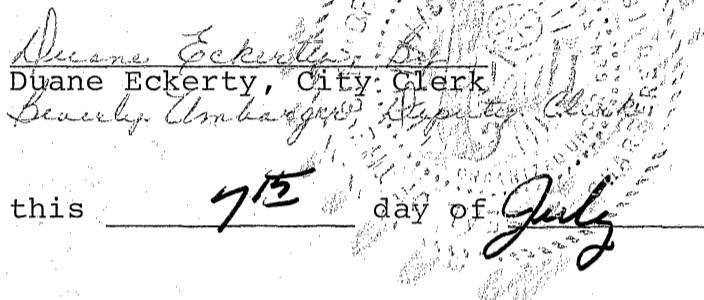 Duane Eckerty, By
Duane Eckerty, City Clerk
Beverly Umbarger, Deputy Clerk
this 7th day of July